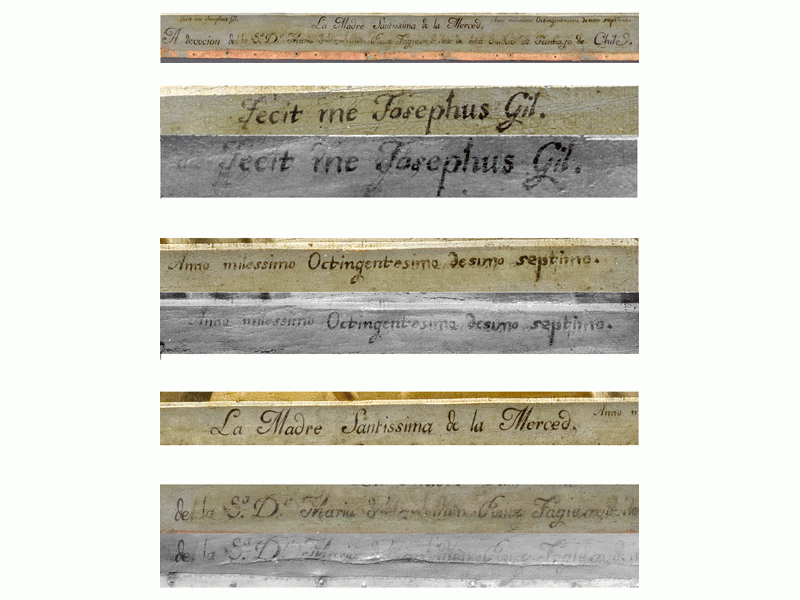 Fecit me Josephus Gil. La Madre Santissima de la Merced. Anno milessimo Octingentesimo desimo septimo.
A devocion de la Sᵃ Dᵃ Maria de esta Ciudad de Santiago de Chile.
Fecit me Josephus Gil.
Fecit me Josephus Gil.
Anno milessimo Octingentesimo desimo septimo.
Anno milessimo Octingentesimo desimo septimo.
La Madre Santissima de la Merced. Anno
de la Sᵃ Dᵃ Maria
de la Sᵃ Dᵃ Maria